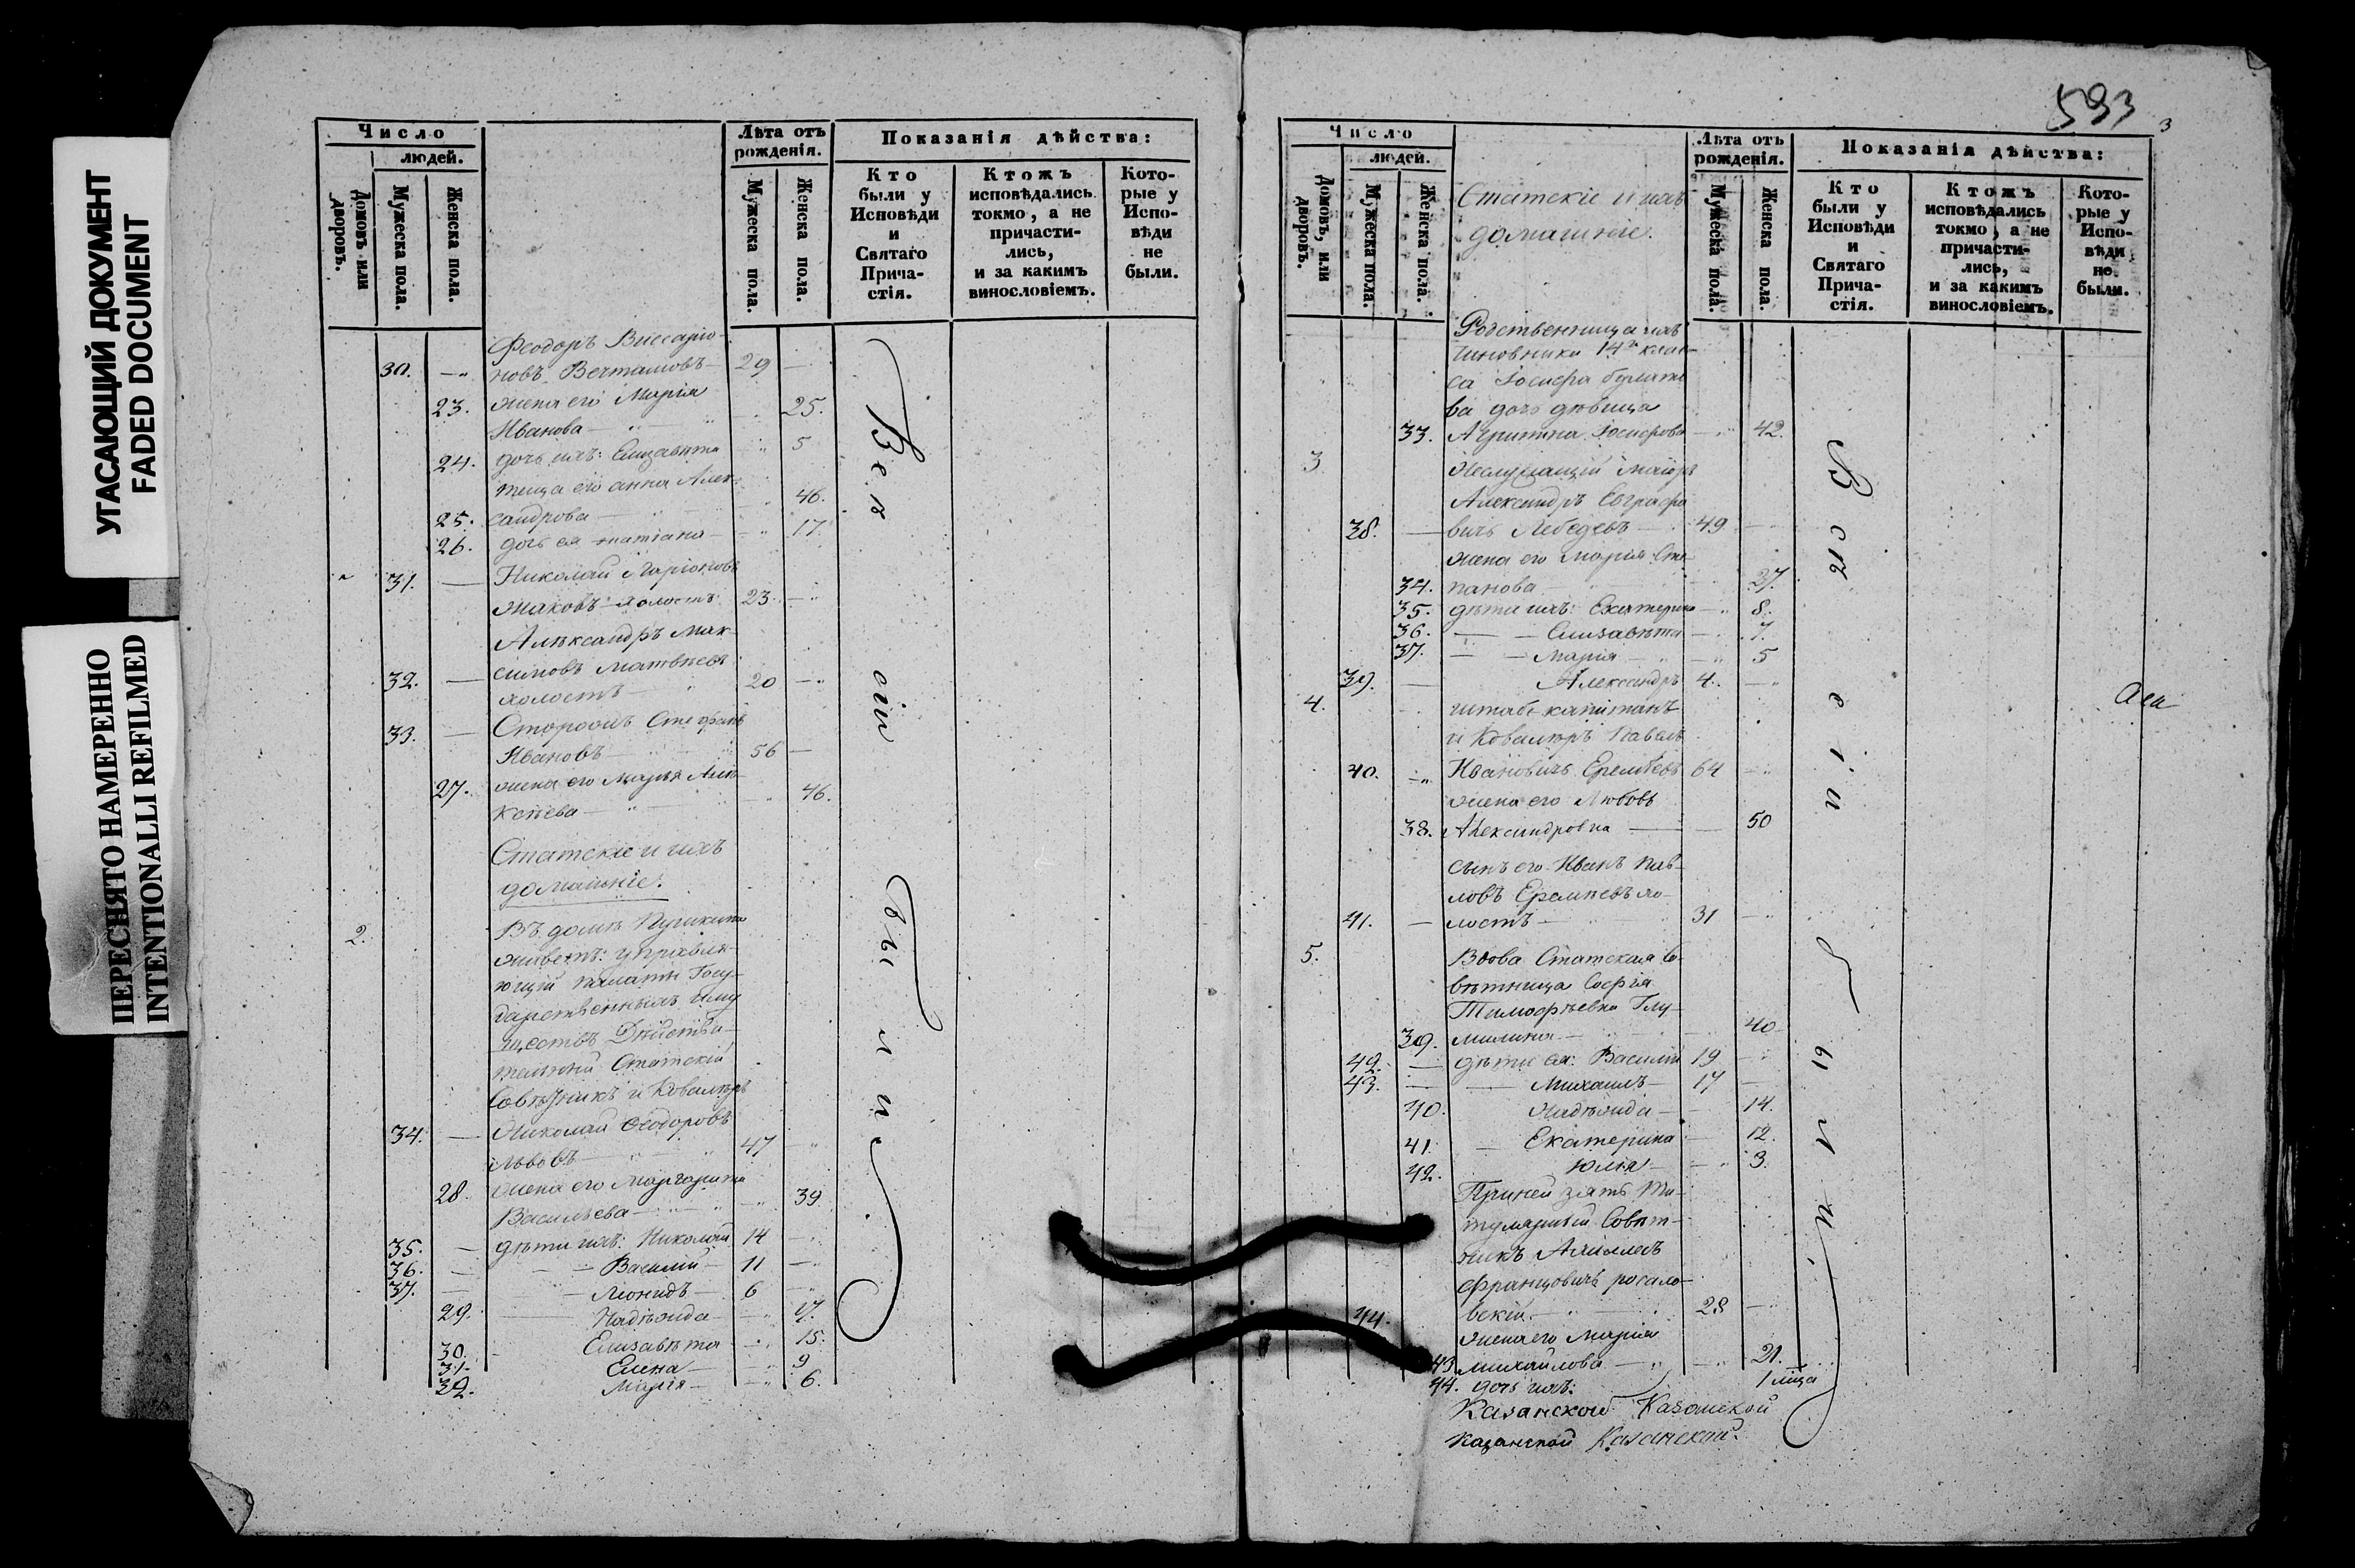 УГАСАЮЩИЙ ДОКУМЕНТ
FADED DOCUMENT
ПЕРЕСНЯТО НАМЕРЕННО
INTENTIONALLI REFILMED
Число
людей.
Домовъ или дворовъ.
Мужеска пола.
Женска пола.
Лѣта отъ рожденія.
Мужеска пола.
Женска пола.
Показанія дѣйства:
Кто были у Исповѣди и Святаго Прича-стія.
Ктожъ исповѣдались токмо, а не причасти-лись, и за какимъ винословіемъ.
Кото-рые у Испо-вѣди не были.
Феодоръ Виссаріо-
30. новъ 29
23. жена его Марія 25.
Иванова
24. дочь ихъ: Елизавета 5
теща его анна Алек-
25. сандрова 46.
26. дочь ея татіана 17.
31. Николай Иларіоновъ
холостъ 23
Александръ Мак-
32. симовъ Матвѣевъ
холостъ 20
33. Сторожъ Стефанъ
Ивановъ 56
27. жена его Марья Але-
ксѣева 46.
Статскіе и ихъ
домашніе.
2. Въ домѣ Пушкина
живетъ: управля-
ющій палаты Госу-
дарственныхъ Иму
ществъ Дѣйстви-
тельный Статскій
Совѣтникъ и Кавалеръ
34. Николай Ѳеодоровъ
Львовъ 47
28. жена его Маргарита
Васильева 39
35. дѣти ихъ: Николай 14
36. Василій 11
37. Леонидъ 6
29. Надежда 17.
30. Елизавѣта 15.
31. Елена 9
32. Марія 6.
Всѣ сіи были.
593
3
Число
людей.
Домовъ, или дворовъ.
Мужеска пола.
Женска пола.
Статскіе и ихъ
домашніе.
Лѣта отъ рожденія.
Мужеска пола.
Женска пола.
Показанія дѣйства:
Кто были у Исповѣди и Святаго Прича-стія.
Ктожъ исповѣдались токмо, а не причасти-лись, и за какимъ винословіемъ.
Кото-рые у Испо-вѣди не были.
Родственница ихъ
чиновника 14го клас-
са Іосифа Булато
ва дочь дѣвица
33. Агрипина Іосифова 42.
3 Неслужащій Маіоръ
Александръ Евграфо
38. вичъ Лебедевъ 49
жена его Марія Сте-
34. панова 27.
35. дѣти ихъ: Екатерина 8.
36. Елизавѣта 7.
37. Марія 5
39. Александръ 4.
4. штабс капитанъ
и Ковалеръ Павелъ
40. Ивановичъ Еремѣевъ 64
жена его Любовь
38. Александровна 50
сынъ его Иванъ Пав-
ловъ Еремѣевъ хо-
41. лостъ 31
5. Вдова Статская Со-
вѣтница Софія
Тимофѣевна Глу-
39. милина 40
42. дѣти ея: Василій 19
43. Михаилъ 17
40. Надежда 14.
41. Екатерина 12.
42. Юлія 3.
При ней зять Ти-
тулярный Совѣт-
никъ Ахиллесъ
Францовичъ росало-
44. вскій 28
жена его Марія
43 михайлова 21.
44. дочь ихъ:
Казанской Казанской
казанской Казанской
Всѣ сіи были